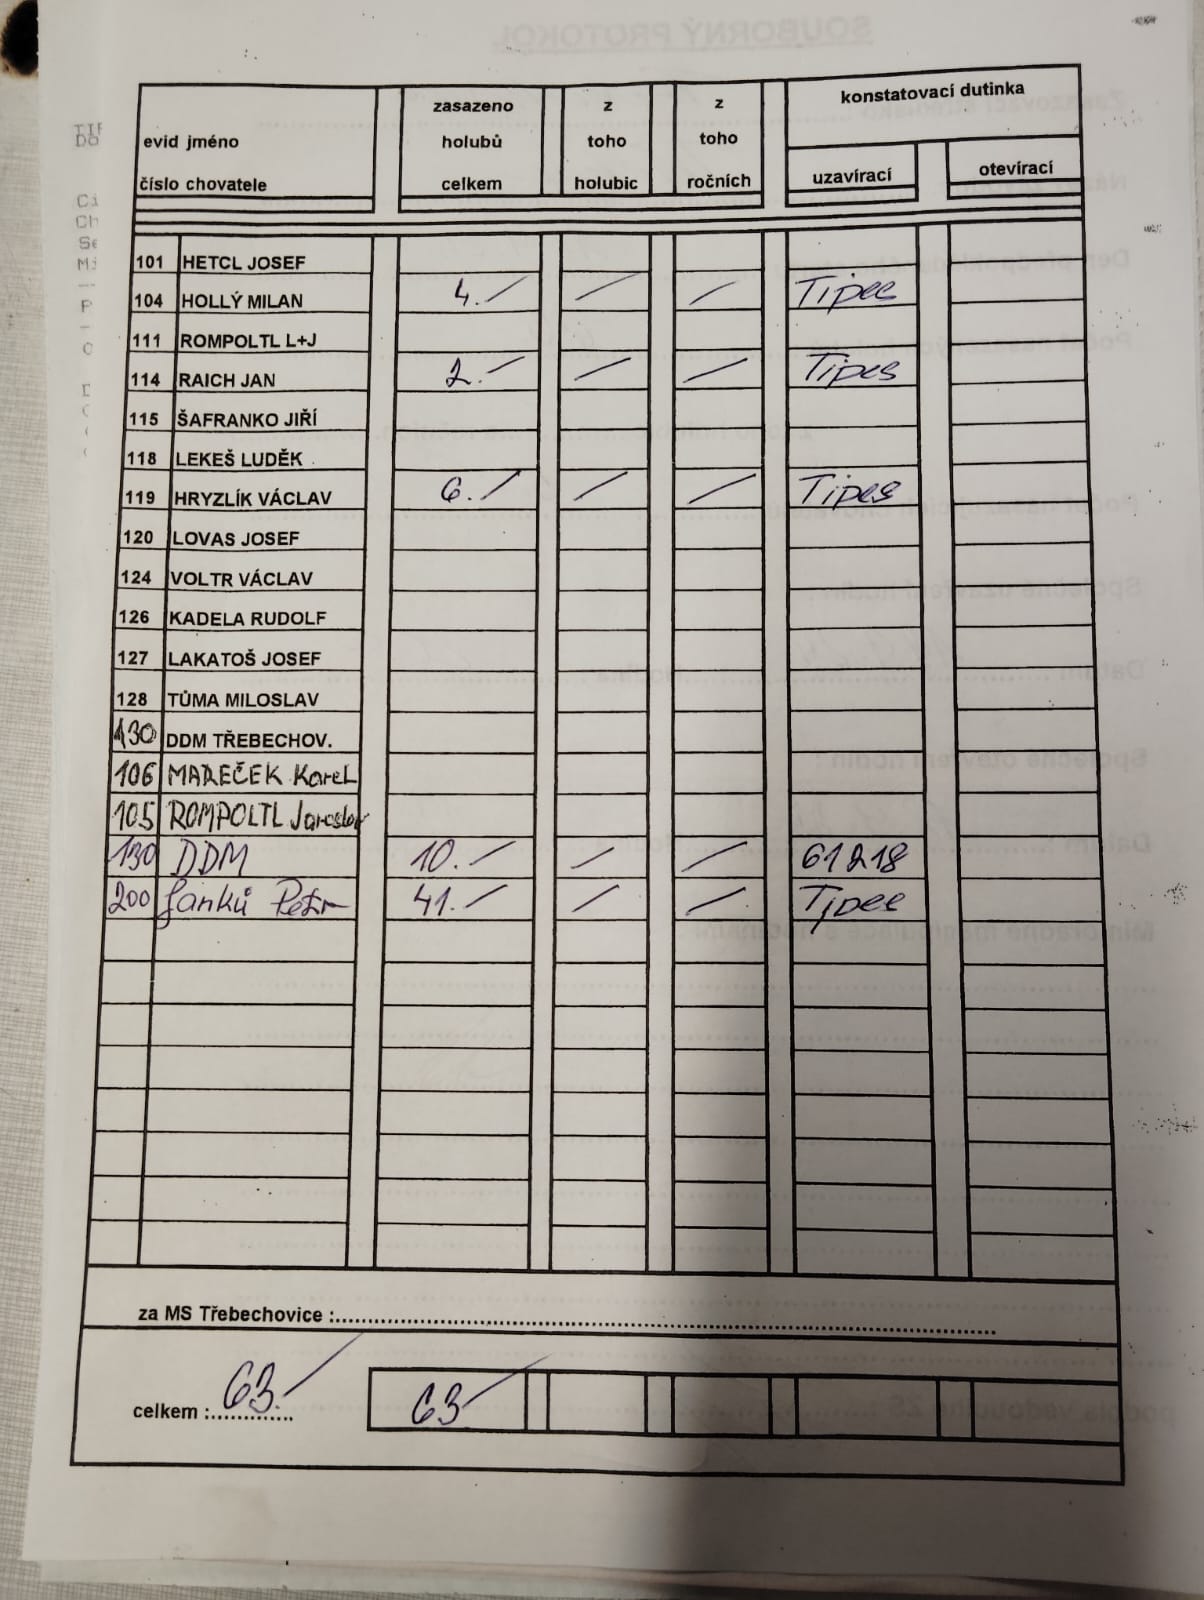 evid jméno
číslo chovatele
zasazeno
holubů
celkem
z
toho
holubic
z
toho
ročních
konstatovací dutinka
uzavírací
otevírací
101 HETCL JOSEF
104 HOLLÝ MILAN 4.- / / Tipes
111 ROMPOLTL L+J
114 RAICH JAN 2.- / / Tipes
115 ŠAFRANKO JIŘÍ
118 LEKEŠ LUDĚK
119 HRYZLÍK VÁCLAV 6.- / / Tipes
120 LOVAS JOSEF
124 VOLTR VÁCLAV
126 KADELA RUDOLF
127 LAKATOŠ JOSEF
128 TŮMA MILOSLAV
130 DDM TŘEBECHOV.
106 MAREČEK Karel
105 ROMPOLTL Jaroslav
130 DDM 10.- / / 61218
200 Janků Petr 41.- / / Tipes
za MS Třebechovice :
celkem : 63.- 63-